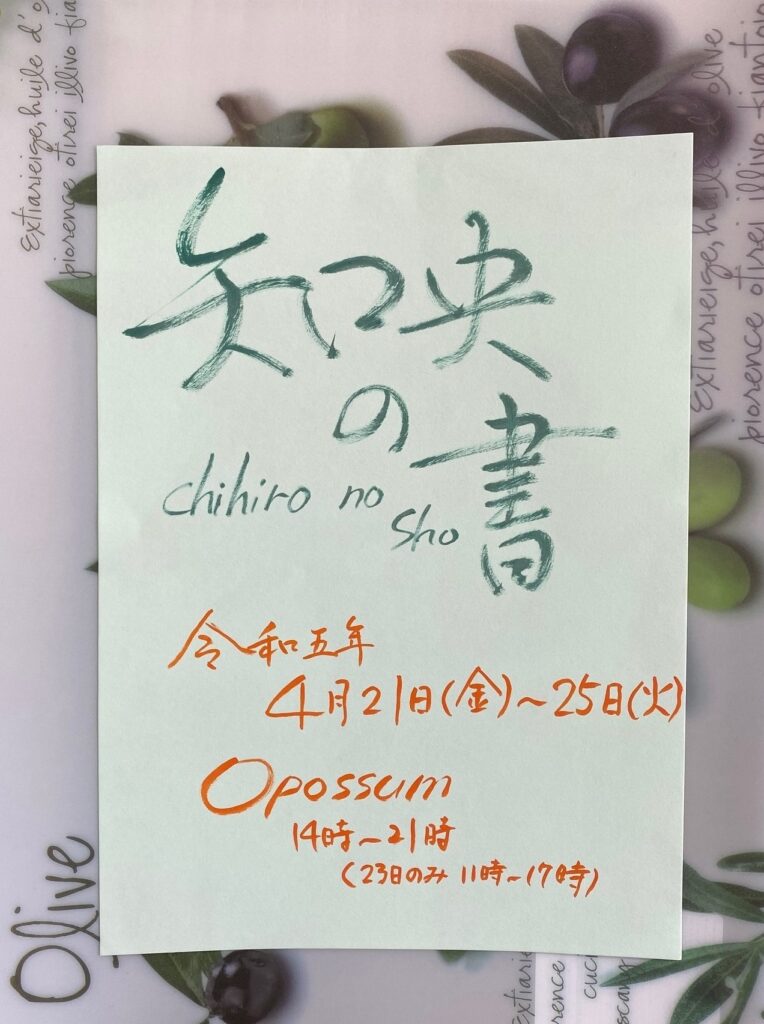 知央
の
書
chihiro no
sho
令和五年
4月21日(金)~25日(火)
Opossum
14時~21時
(23日のみ 11時~17時)
Olive
Extiarieige, huile d'o
piorence otirei illivo tiantoio
Extiarieige, huile d'olive
piorence otirei illivo tiantoio